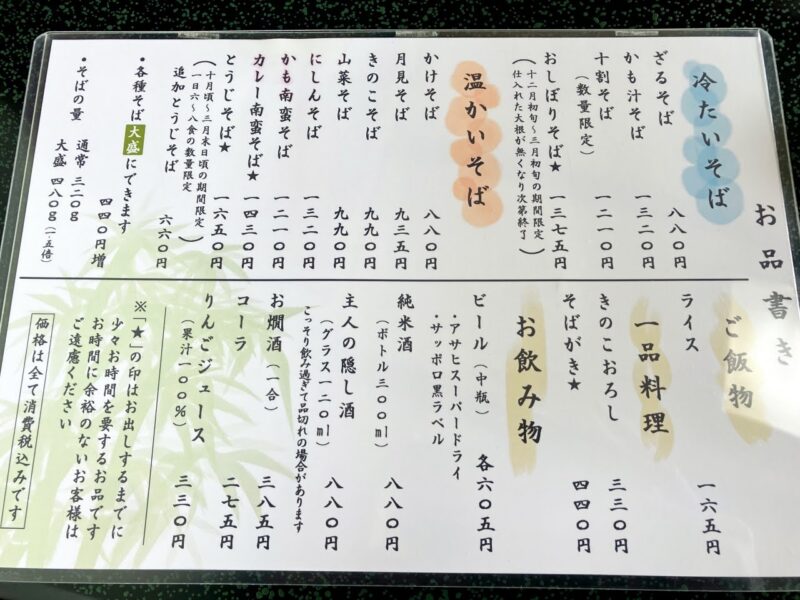 お品書き
冷たいそば
ざるそば 八八〇円
かも汁そば 一三二〇円
十割そば 一二一〇円
（数量限定）
おしぼりそば★ 一三七五円
（十二月初旬～三月初旬の期間限定
仕入れた大根が無くなり次第終了）
温かいそば
かけそば 八八〇円
月見そば 九三五円
きのこそば 九九〇円
山菜そば 九九〇円
にしんそば 一三二〇円
かも南蛮そば 一二一〇円
カレー南蛮そば★ 一四三〇円
とうじそば★ 一六五〇円
（十月頃～三月末日頃の期間限定
一日六～八食の数量限定）
追加とうじそば 六六〇円
・各種そば大盛にできます
四四〇円増
・そばの量 通常 三二〇g
大盛 四八〇g（一.五倍）
ご飯物
ライス 一六五円
一品料理
きのこおろし 三三〇円
そばがき★ 四四〇円
お飲み物
ビール（中瓶） 各六〇五円
・アサヒスーパードライ
・サッポロ黒ラベル
純米酒 八八〇円
（ボトル三〇〇ml）
主人の隠し酒 八八〇円
（グラス一二〇ml）
こっそり飲み過ぎて品切れの場合があります
お燗酒（一合） 三八五円
コーラ 二七五円
りんごジュース 三三〇円
（果汁一〇〇%）
※「★」の印はお出しするまでに
少々お時間を要するお品です
お時間に余裕のないお客様は
ご遠慮ください
価格は全て消費税込みです